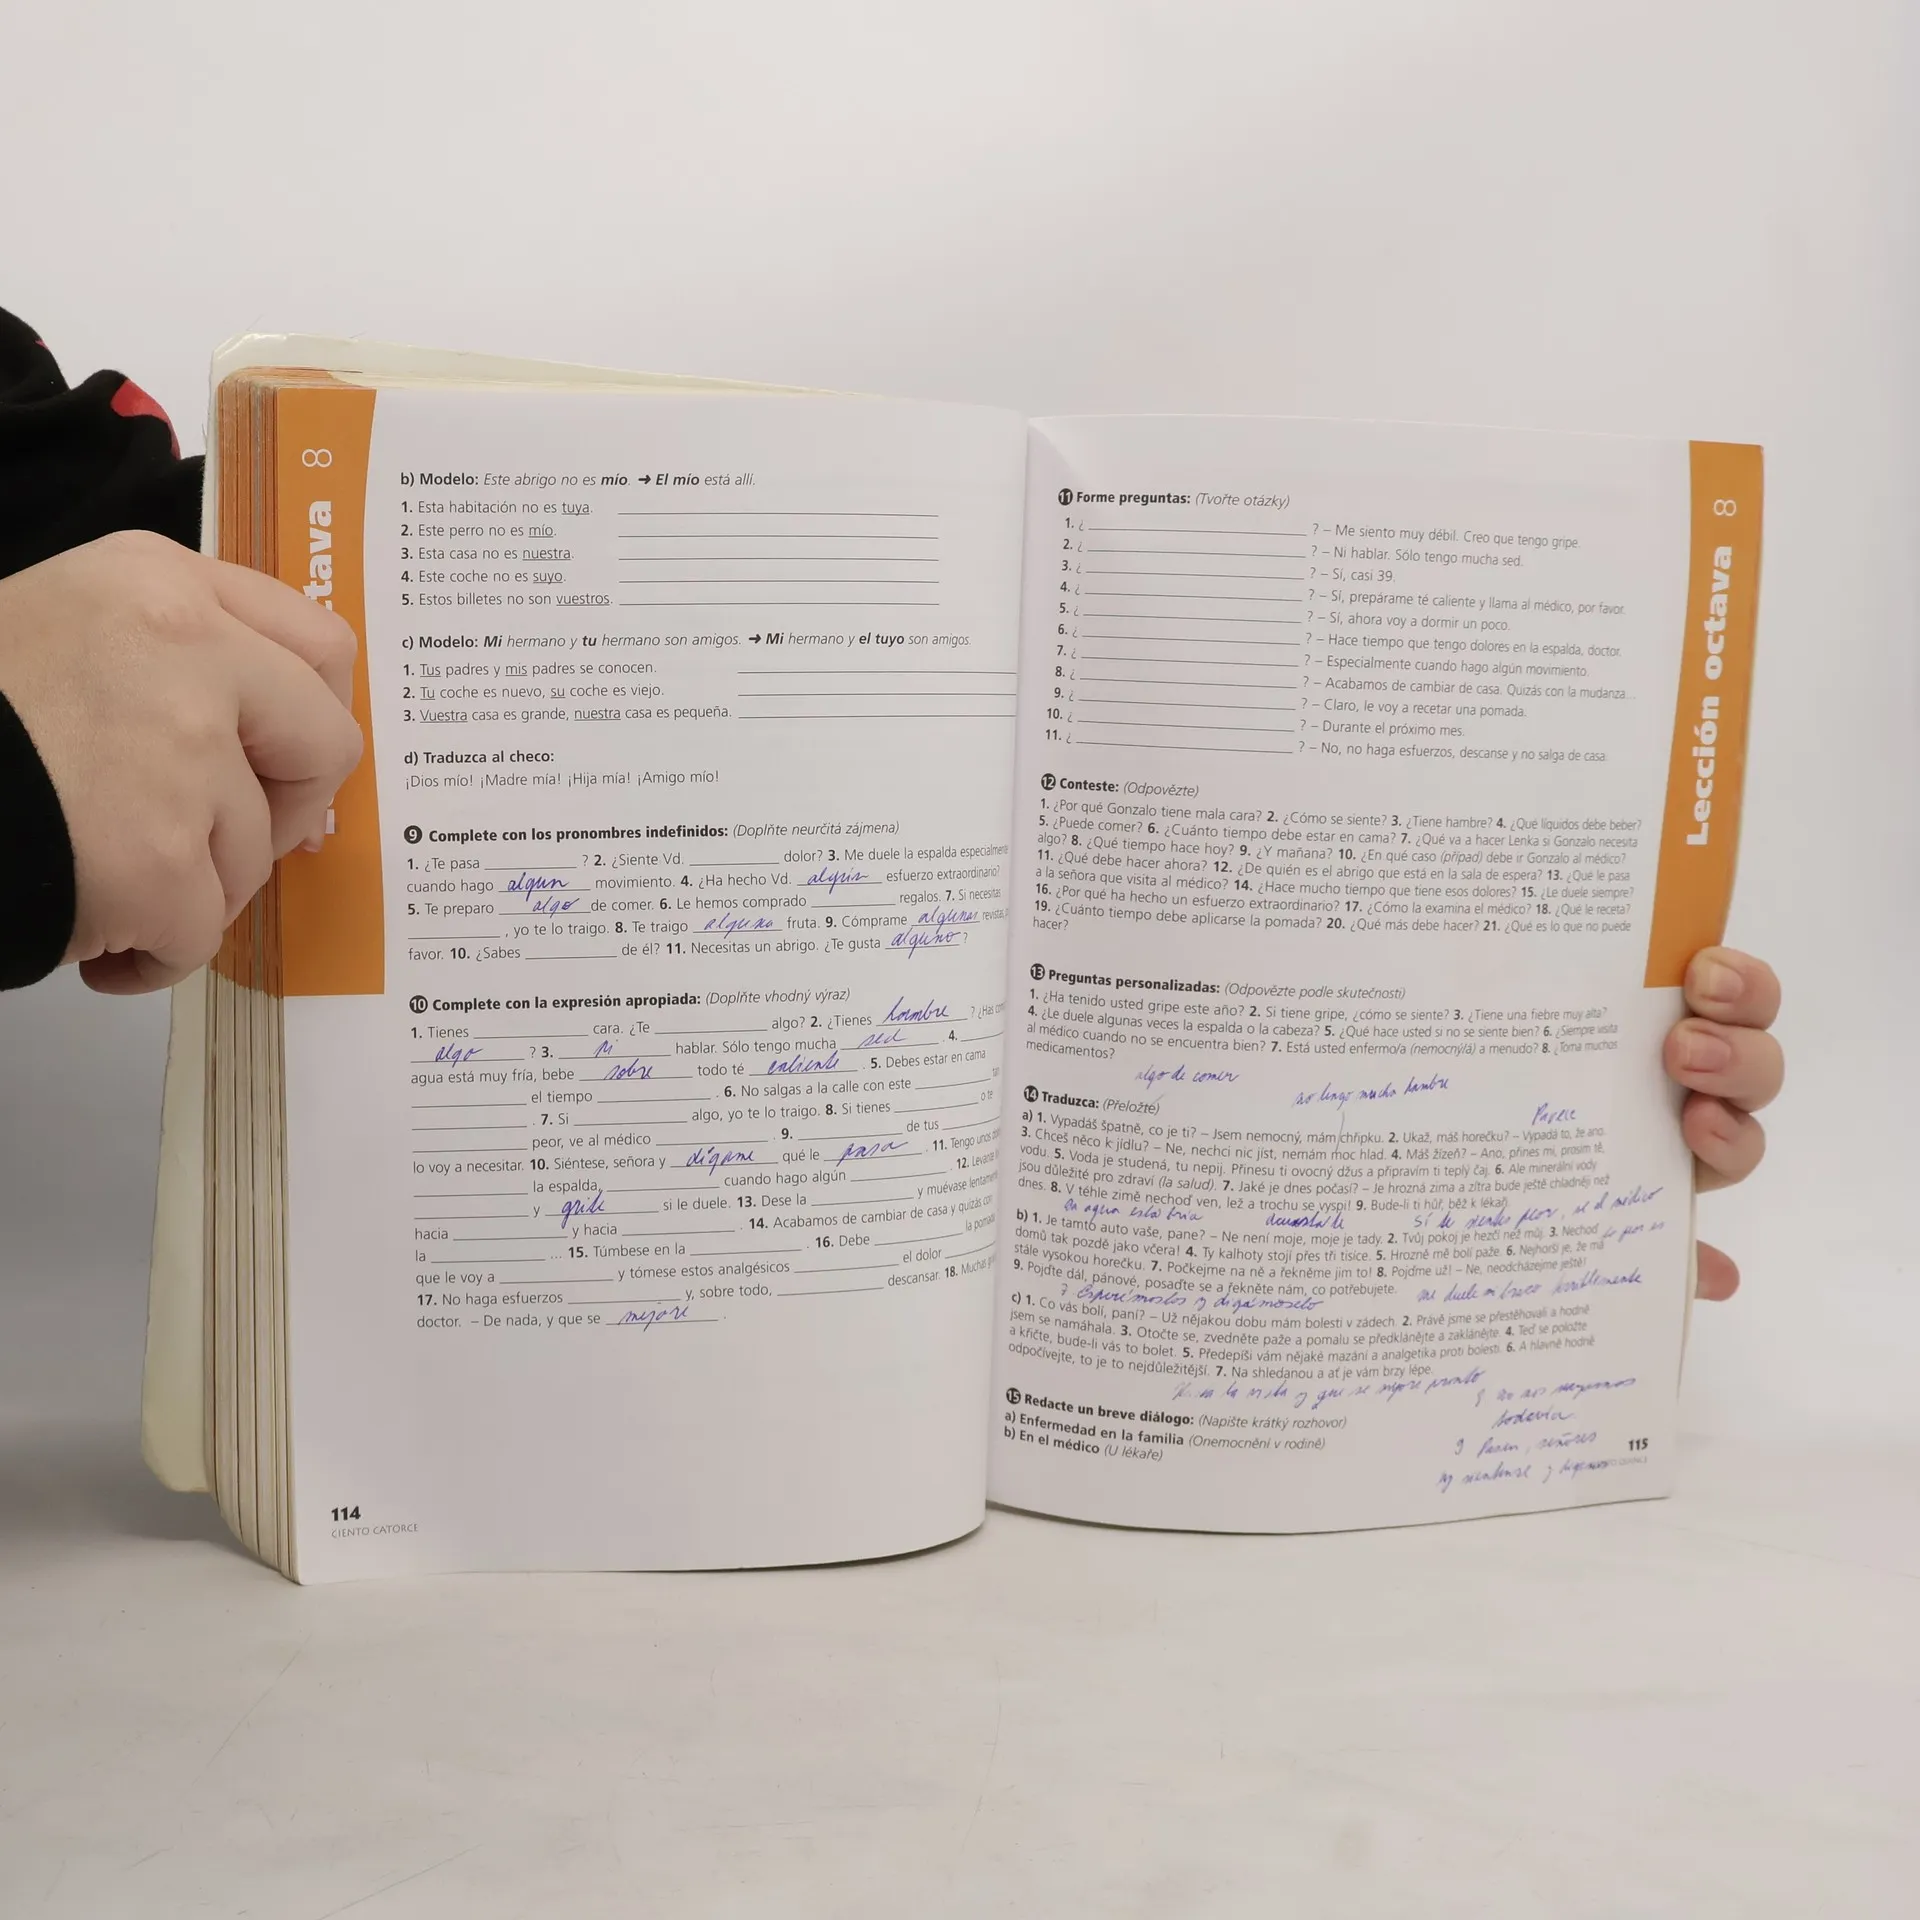 8
b) Modelo: Este abrigo no es mío. ➜ El mío está allí.
1. Esta habitación no es tuya.
2. Este perro no es mío.
3. Esta casa no es nuestra.
4. Este coche no es suyo.
5. Estos billetes no son vuestros.
c) Modelo: Mi hermano y tu hermano son amigos. ➜ Mi hermano y el tuyo son amigos.
1. Tus padres y mis padres se conocen.
2. Tu coche es nuevo, su coche es viejo.
3. Vuestra casa es grande, nuestra casa es pequeña.
d) Traduzca al checo:
¡Dios mío! ¡Madre mía! ¡Hija mía! ¡Amigo mío!
9 Complete con los pronombres indefinidos: (Doplňte neurčitá zájmena)
1. ¿Te pasa ? 2. ¿Siente Vd. dolor? 3. Me duele la espalda especialmente
cuando hago algun movimiento. 4. ¿Ha hecho Vd. algún esfuerzo extraordinario?
5. Te preparo algo de comer. 6. Le hemos comprado regalos. 7. Si necesitas
, yo te lo traigo. 8. Te traigo alguna fruta. 9. Cómprame algunas revistas,
favor. 10. ¿Sabes de él? 11. Necesitas un abrigo. ¿Te gusta alguno ?
10 Complete con la expresión apropiada: (Doplňte vhodný výraz)
1. Tienes cara. ¿Te algo? 2. ¿Tienes hambre ? ¿Has
algo ? 3. Ni hablar. Sólo tengo mucha sed . 4.
agua está muy fría, bebe sobre todo té caliente . 5. Debes estar en cama
el tiempo . 6. No salgas a la calle con este
. 7. Si algo, yo te lo traigo. 8. Si tienes o te
peor, ve al médico . 9. de tus
lo voy a necesitar. 10. Siéntese, señora y dígame qué le pasa . 11. Tengo unos
la espalda, cuando hago algún . 12. Levante
y grite si le duele. 13. Dese la y muévase lentamente
hacia y hacia . 14. Acabamos de cambiar de casa y quizás con
la ... 15. Túmbese en la . 16. Debe la pomada
que le voy a y tómese estos analgésicos el dolor
17. No haga esfuerzos y, sobre todo, descansar. 18. Muchas
doctor. – De nada, y que se mejore .
114
CIENTO CATORCE
Lección octava 8
11 Forme preguntas: (Tvořte otázky)
1. ¿ ? – Me siento muy débil. Creo que tengo gripe.
2. ¿ ? – Ni hablar. Sólo tengo mucha sed.
3. ¿ ? – Sí, casi 39.
4. ¿ ? – Sí, prepárame té caliente y llama al médico, por favor.
5. ¿ ? – Sí, ahora voy a dormir un poco.
6. ¿ ? – Hace tiempo que tengo dolores en la espalda, doctor.
7. ¿ ? – Especialmente cuando hago algún movimiento.
8. ¿ ? – Acabamos de cambiar de casa. Quizás con la mudanza...
9. ¿ ? – Claro, le voy a recetar una pomada.
10. ¿ ? – Durante el próximo mes.
11. ¿ ? – No, no haga esfuerzos, descanse y no salga de casa.
12 Conteste: (Odpovězte)
1. ¿Por qué Gonzalo tiene mala cara? 2. ¿Cómo se siente? 3. ¿Tiene hambre? 4. ¿Qué líquidos debe beber?
5. ¿Puede comer? 6. ¿Cuánto tiempo debe estar en cama? 7. ¿Qué va a hacer Lenka si Gonzalo necesita
algo? 8. ¿Qué tiempo hace hoy? 9. ¿Y mañana? 10. ¿En qué caso (případ) debe ir Gonzalo al médico?
11. ¿Qué debe hacer ahora? 12. ¿De quién es el abrigo que está en la sala de espera? 13. ¿Qué le pasa
a la señora que visita al médico? 14. ¿Hace mucho tiempo que tiene esos dolores? 15. ¿Le duele siempre?
16. ¿Por qué ha hecho un esfuerzo extraordinario? 17. ¿Cómo la examina el médico? 18. ¿Qué le receta?
19. ¿Cuánto tiempo debe aplicarse la pomada? 20. ¿Qué más debe hacer? 21. ¿Qué es lo que no puede
hacer?
13 Preguntas personalizadas: (Odpovězte podle skutečnosti)
1. ¿Ha tenido usted gripe este año? 2. Si tiene gripe, ¿cómo se siente? 3. ¿Tiene una fiebre muy alta?
4. ¿Le duele algunas veces la espalda o la cabeza? 5. ¿Qué hace usted si no se siente bien? 6. ¿Siempre visita
al médico cuando no se encuentra bien? 7. Está usted enfermo/a (nemocný/á) a menudo? 8. ¿Toma muchos
medicamentos?
algo de comer no tengo mucha hambre
14 Traduzca: (Přeložte) Parece
a) 1. Vypadáš špatně, co je ti? – Jsem nemocný, mám chřipku. 2. Ukaž, máš horečku? – Vypadá to, že ano.
3. Chceš něco k jídlu? – Ne, nechci nic jíst, nemám moc hlad. 4. Máš žízeň? – Ano, přines mi, prosím tě,
vodu. 5. Voda je studená, tu nepij. Přinesu ti ovocný džus a připravím ti teplý čaj. 6. Ale minerální vody
jsou důležité pro zdraví (la salud). 7. Jaké je dnes počasí? – Je hrozná zima a zítra bude ještě chladněji než
dnes. 8. V téhle zimě nechoď ven, lež a trochu se vyspi! 9. Bude-li ti hůř, běž k lékaři.
agua está fría Si te sientes peor, el médico
b) 1. Je tamto auto vaše, pane? – Ne není moje, moje je tady. 2. Tvůj pokoj je hezčí než můj. 3. Nechoď
domů tak pozdě jako včera! 4. Ty kalhoty stojí přes tři tisíce. 5. Hrozně mě bolí paže. 6. Nejhorší je, že má
stále vysokou horečku. 7. Počkejme na ně a řekněme jim to! 8. Pojďme už! – Ne, neodcházejme ještě!
9. Pojďte dál, pánové, posaďte se a řekněte nám, co potřebujete. me duele mi brazo terriblemente
c) 1. Co vás bolí, paní? – Už nějakou dobu mám bolesti v zádech. 2. Právě jsme se přestěhovali a hodně
jsem se namáhala. 3. Otočte se, zvedněte paže a pomalu se předklánějte a zaklánějte. 4. Teď se položte
a křičte, bude-li vás to bolet. 5. Předepíši vám nějaké mazání a analgetika proti bolesti. 6. A hlavně hodně
odpočívejte, to je to nejdůležitější. 7. Na shledanou a ať je vám brzy lépe.
15 Redacte un breve diálogo: (Napište krátký rozhovor)
a) Enfermedad en la familia (Onemocnění v rodině)
todavía
b) En el médico (U lékaře)
9 Pasen, señores
115